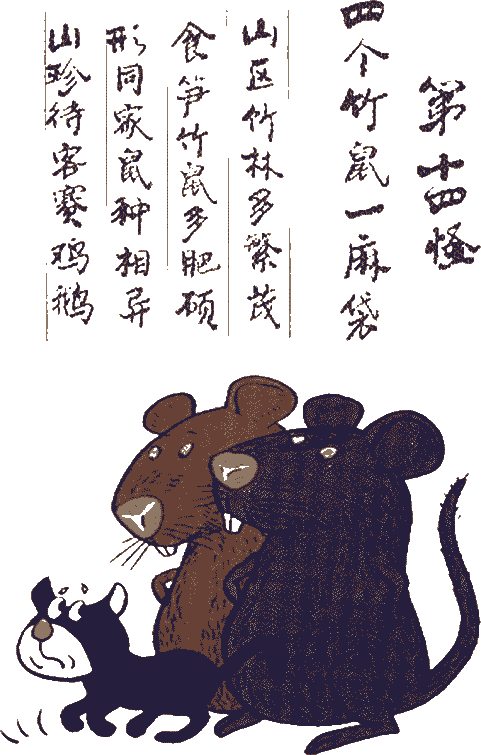 第十四怪
四个竹鼠一麻袋
山区竹林多繁茂
食笋竹鼠多肥硕
形同家鼠种相异
山珍待客赛鸡鹅